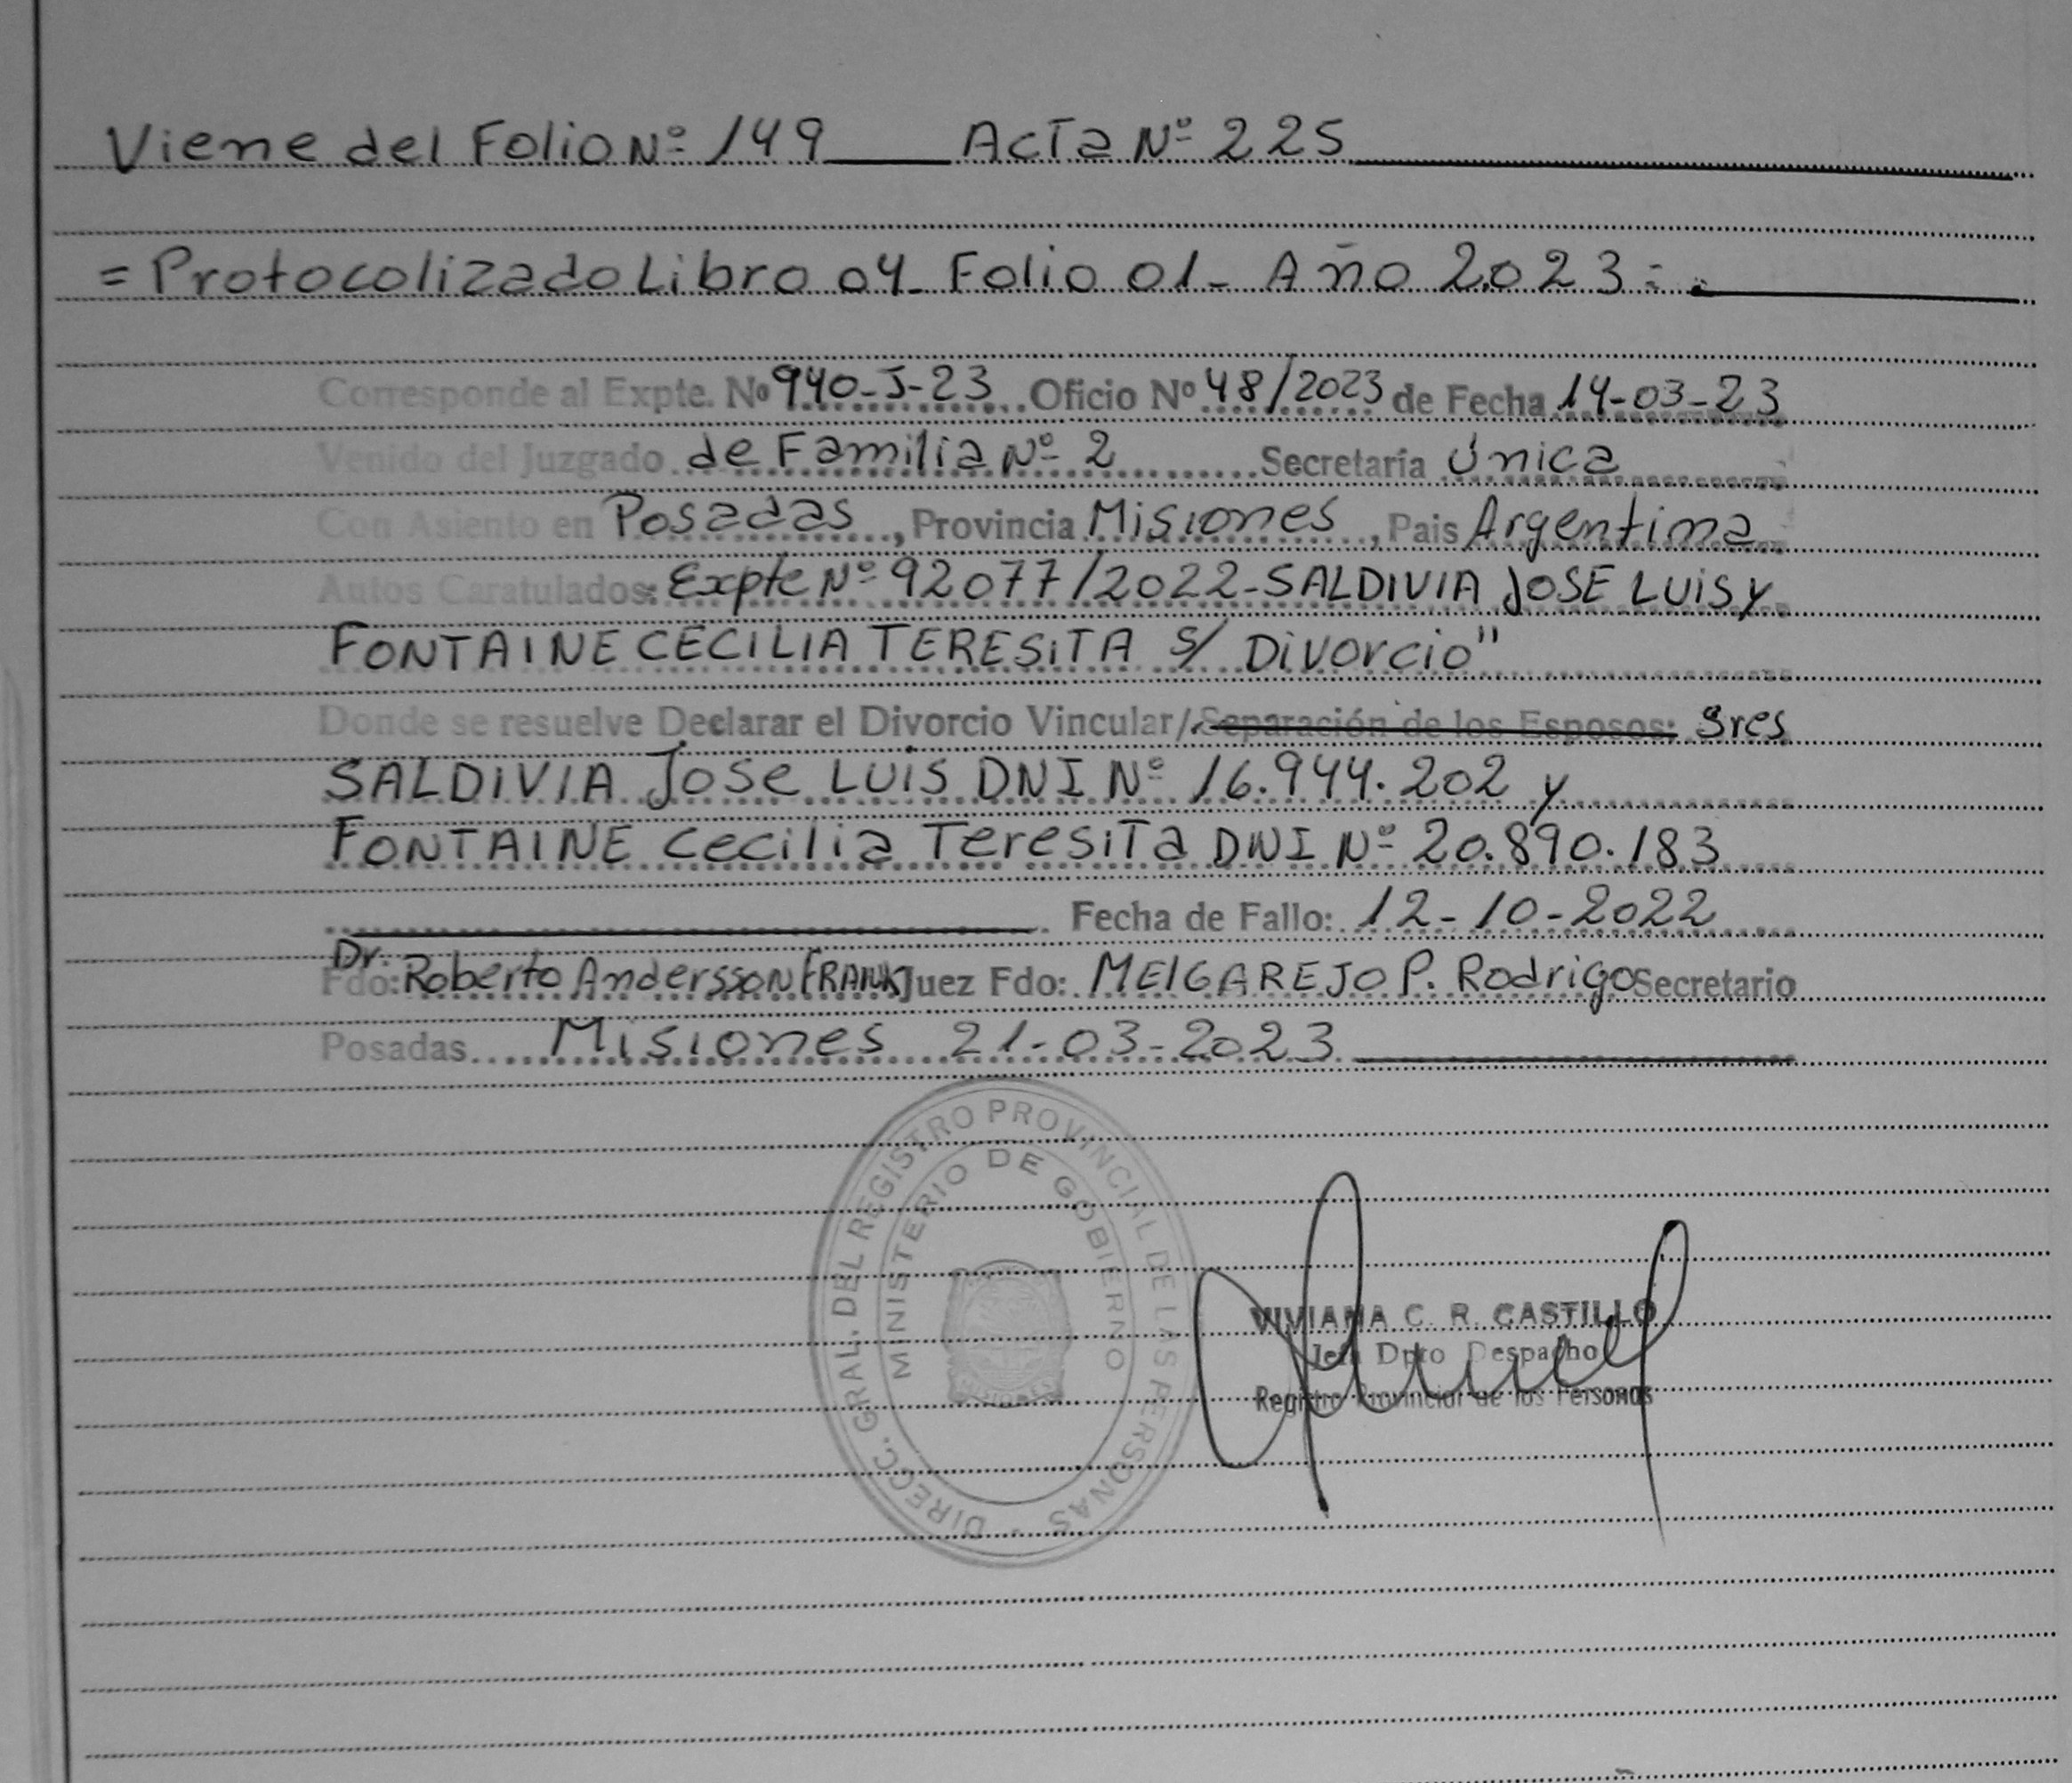 Viene del Folio Nº 149 Acta Nº 225
= Protocolizado Libro 04- Folio 01- Año 2.023=.
Corresponde al Expte. Nº 940-J-23 Oficio Nº 48/2023 de Fecha 14-03-23
Venido del Juzgado de Familia Nº 2 Secretaría Única
Con Asiento en Posadas, Provincia Misiones, Pais Argentina
Autos Caratulados: Expte Nº 92077/2022-SALDIVIA JOSE LUIS y
FONTAINE CECILIA TERESITA S/ Divorcio"
Donde se resuelve Declarar el Divorcio Vincular/ Separación de los Esposos: Sres
SALDIVIA Jose LUIS DNI Nº 16.944.202 y
FONTAINE Cecilia Teresita DNI Nº 20.890.183
Fecha de Fallo: 12-10-2022
Fdo: Dr. Roberto Andersson FRANK Juez Fdo: MElGAREJO P. Rodrigo Secretario
Posadas Misiones 21-03-2023
DIRECC. GRAL. DEL REGISTRO PROVINCIAL DE LAS PERSONAS
MINISTERIO DE GOBIERNO
MISIONES
VIVIANA C. R. CASTILLO
Jefa Dpto Despacho
Registro Provincial de las Personas